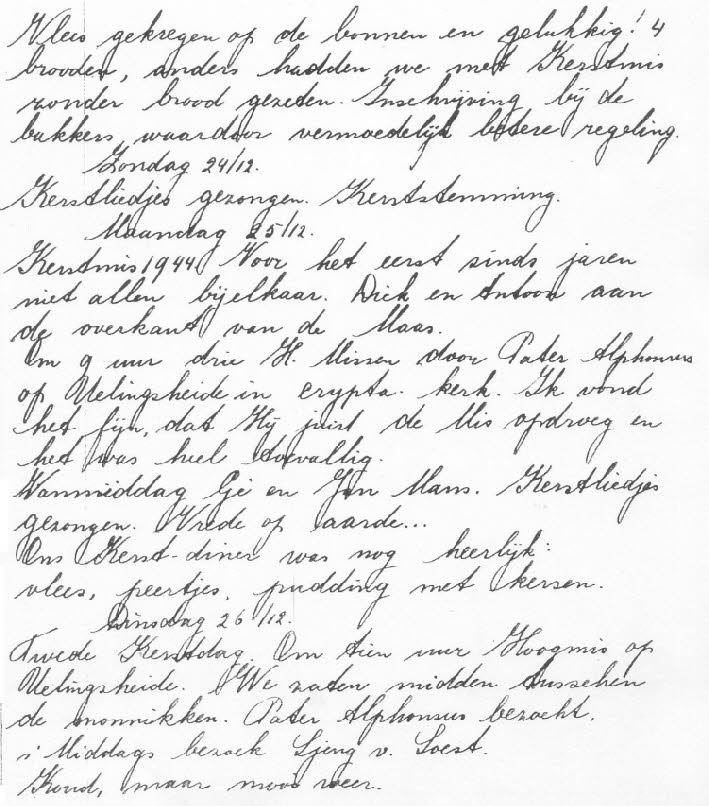 Vlees gekregen op de bonnen en gelukkig! 4
brooden, anders hadden we met Kerstmis
zonder brood gezeten. Inschrijving bij de
bakkers, waardoor vermoedelijk betere regeling.
Zondag 24/12.
Kerstliedjes gezongen. Kerststemming.
Maandag 25/12.
Kerstmis 1944. Voor het eerst sinds jaren
niet allen bijelkaar. Dick en Antoon aan
de overkant van de Maas.
Om 9 uur drie H. Missen door Pater Alphonsus
op Ulingsheide in crypta. kerk. Ik vond
het fijn, dat Hij juist de Mis opdroeg en
het was heel toevallig.
Vanmiddag Gé en Jan Mans. Kerstliedjes
gezongen. Vrede op aarde...
Ons Kerst-diner was nog heerlijk:
vlees, peertjes, pudding met kersen.
Dinsdag 26/12.
Twede Kerstdag. Om tien uur Hoogmis op
Ulingsheide. We zaten midden tusschen
de monnikken. Pater Alphonsus bezocht.
s' Middags bezoek Sjeng v. Soest.
Koud, maar mooi weer.